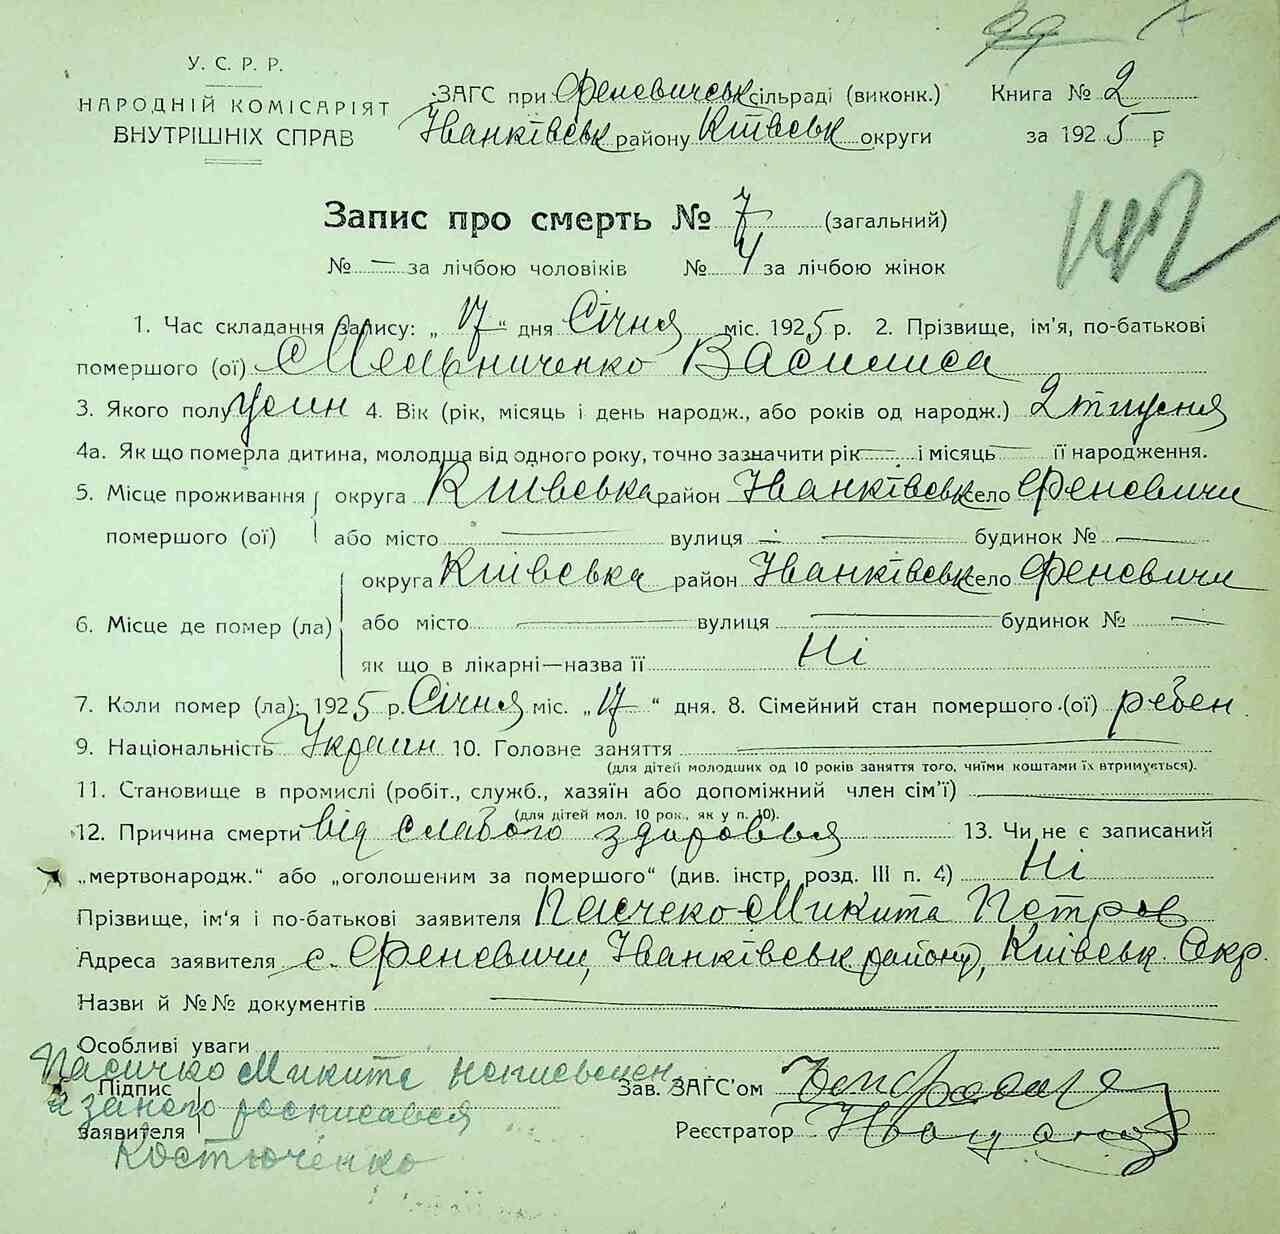 У. С. Р. Р.
НАРОДНІЙ КОМІСАРІЯТ
ВНУТРІШНІХ СПРАВ
ЗАГС при Феневичськ сільраді (виконк.)
Іванківськ району Київськ округи
Книга № 2
за 1925 р
Запис про смерть № 7 (загальний)
№ — за лічбою чоловіків № 4 за лічбою жінок
142
1. Час складання запису: „17“ дня Січня міс. 1925 р. 2. Прізвище, ім'я, по-батькові
помершого (ої) Мельниченко Василиса
3. Якого полу жін 4. Вік (рік, місяць і день народж., або років од народж.) 2 тиусня
4а. Як що померла дитина, молодша від одного року, точно зазначити рік — і місяць — її народження.
5. Місце проживання помершого (ої) округа Київська район Іванківськ село Феневичи
або місто — вулиця — будинок № —
6. Місце де помер (ла) округа Київська район Іванківськ село Феневичи
або місто — вулиця — будинок № —
як що в лікарні—назва її Ні
7. Коли помер (ла): 1925 р. Січня міс. „17“ дня. 8. Сімейний стан помершого (ої) ребен
9. Національність Украин 10. Головне заняття —
(для дітей молодших од 10 років заняття того, чиїми коштами їх втримується).
11. Становище в промислі (робіт., служб., хазяїн або допоміжний член сім'ї) —
(для дітей мол. 10 рок., як у п. 10).
12. Причина смерти від слабого здоровья 13. Чи не є записаний
„мертвонародж.“ або „оголошеним за помершого“ (див. інстр. розд. III п. 4) Ні
Прізвище, ім'я і по-батькові заявителя Пасічко Микита Петров
Адреса заявителя с. Феневичи, Іванківськ району, Київськ. Окр.
Назви й №№ документів —
Особливі уваги
Пасичко Микита
Підпис заявителя
а за него росписався
Костюченко
Зав. ЗАГС'ом
Реєстратор